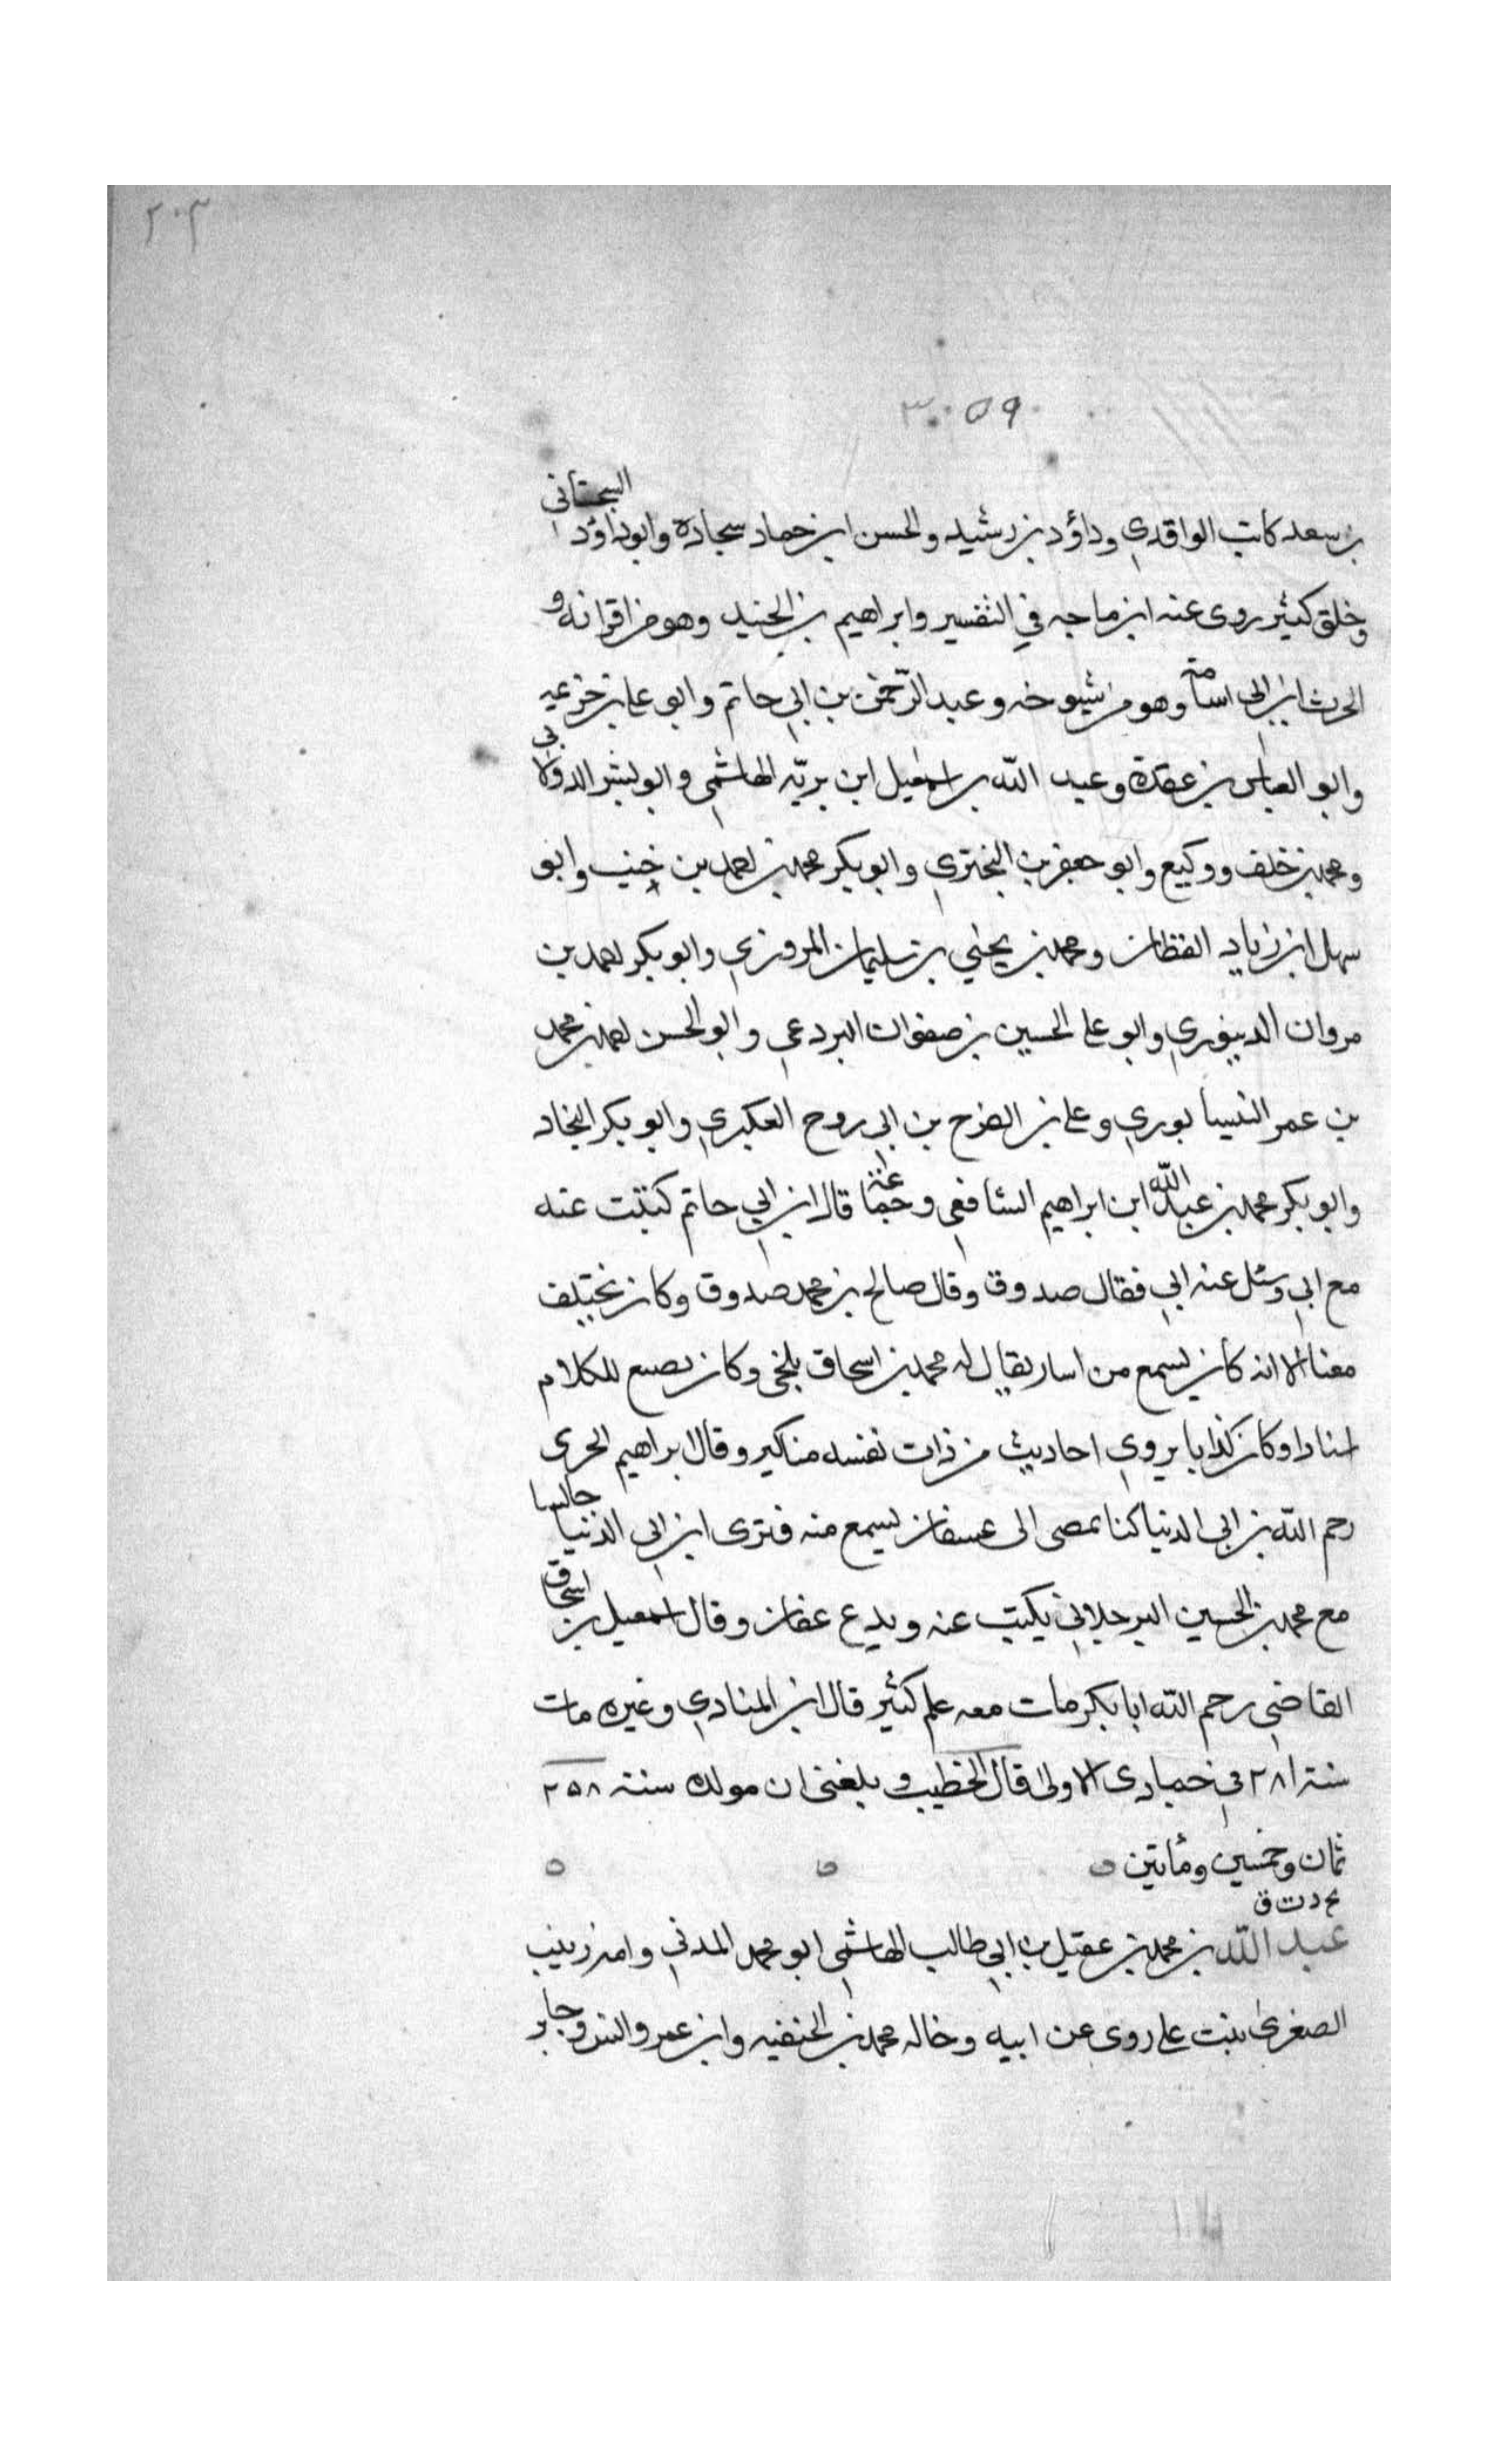 ٢٠٣
٣٠٥٩
بن سعد كاتب الواقدي وداؤد بن رشيد والحسن ابن حماد سجادة وابو داؤد السجستاني
وخلق كثير روى عنه ابن ماجه في التفسير وابراهيم بن الجنيد وهو من اقرانه و
الحرث ابن ابي اسامة وهو من شيوخه وعبد الرّحمن بن ابي حاتم وابو علي بن خزيمه
وابو العباس بن عقدة وعبد اللّه بن اسمعيل ابن بريّه الهاشمي وابو بشر الدولابي
ومحمد بن خلف ووكيع وابو جعفر بن البختري وابو بكر محمد بن احمد بن خنب وابو
سهل ابن زياد القطان ومحمد بن يحيي بن سليمان المروزي وابو بكر احمد بن
مروان الدينوري وابو علي الحسين بن صفوان البردعي وابو الحسن احمد بن محمد
بن عمر النيسابوري وعلي بن الفرج بن ابي روح العكبري وابو بكر النجاد
وابو بكر محمد بن عبد اللّه ابن ابراهيم الشافعي وجماعة قال ابن ابي حاتم كتبت عنه
مع ابي وسئل عنه ابي فقال صدوق وقال صالح بن محمد صدوق وكان يختلف
معنا الا انه كان يسمع من اسان يقال له محمد بن اسحاق بلخي وكان يصع للكلام
اسنادا وكان كذابا يروي احاديث من ذات نفسه مناكير وقال ابراهيم الحربى
رحم اللّه بن ابى الدنيا كنا نمصى الى عسفان ليسمع منه فترى ابن ابي الدنيا جالسا
مع محمد بن الحسين البرجلاني يكتب عنه ويدع عفان وقال اسمعيل بن اسحاق
القاضي رحم اللّه ابا بكر مات معه علم كثير قال ابن المنادي وغيره مات
سنة ٢٨١ في جمادى الاولى قال الخطيب وبلغنى ان مولده سنة ٢٥٨
ثمان وخمسين ومأتين ه ه ه
بخ د ت ق
عبد اللّه بن محمد بن عقيل بن ابي طالب الهاشمي ابو محمد المدني وامه زينب
الصغرى بنت علي روى عن ابيه وخاله محمد بن الحنفيه وابن عمر وانس وجابر